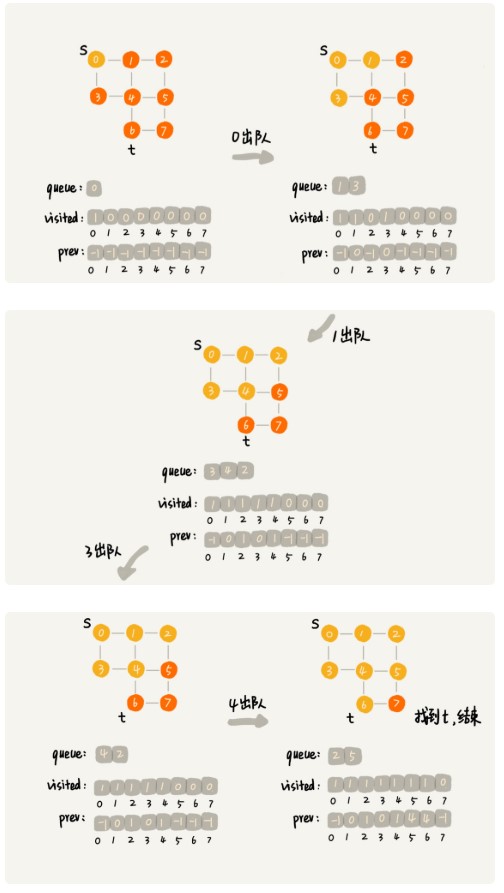 S 0 1 2
3 4 5
6 7
t
queue: 0
visited: 1 0 0 0 0 0 0 0
0 1 2 3 4 5 6 7
prev: -1 -1 -1 -1 -1 -1 -1 -1
0 1 2 3 4 5 6 7
0出队
S 0 1 2
3 4 5
6 7
t
queue: 1 3
visited: 1 1 0 1 0 0 0 0
0 1 2 3 4 5 6 7
prev: -1 0 -1 0 -1 -1 -1 -1
0 1 2 3 4 5 6 7
1出队
S 0 1 2
3 4 5
6 7
t
queue: 3 4 2
visited: 1 1 1 1 1 0 0 0
0 1 2 3 4 5 6 7
prev: -1 0 1 0 1 -1 -1 -1
0 1 2 3 4 5 6 7
3出队
S 0 1 2
3 4 5
6 7
t
queue: 4 2
visited: 1 1 1 1 1 0 0 0
0 1 2 3 4 5 6 7
prev: -1 0 1 0 1 -1 -1 -1
0 1 2 3 4 5 6 7
4出队
S 0 1 2
3 4 5
6 7
t
找到t,结束
queue: 2 5
visited: 1 1 1 1 1 1 1 0
0 1 2 3 4 5 6 7
prev: -1 0 1 0 1 4 4 -1
0 1 2 3 4 5 6 7